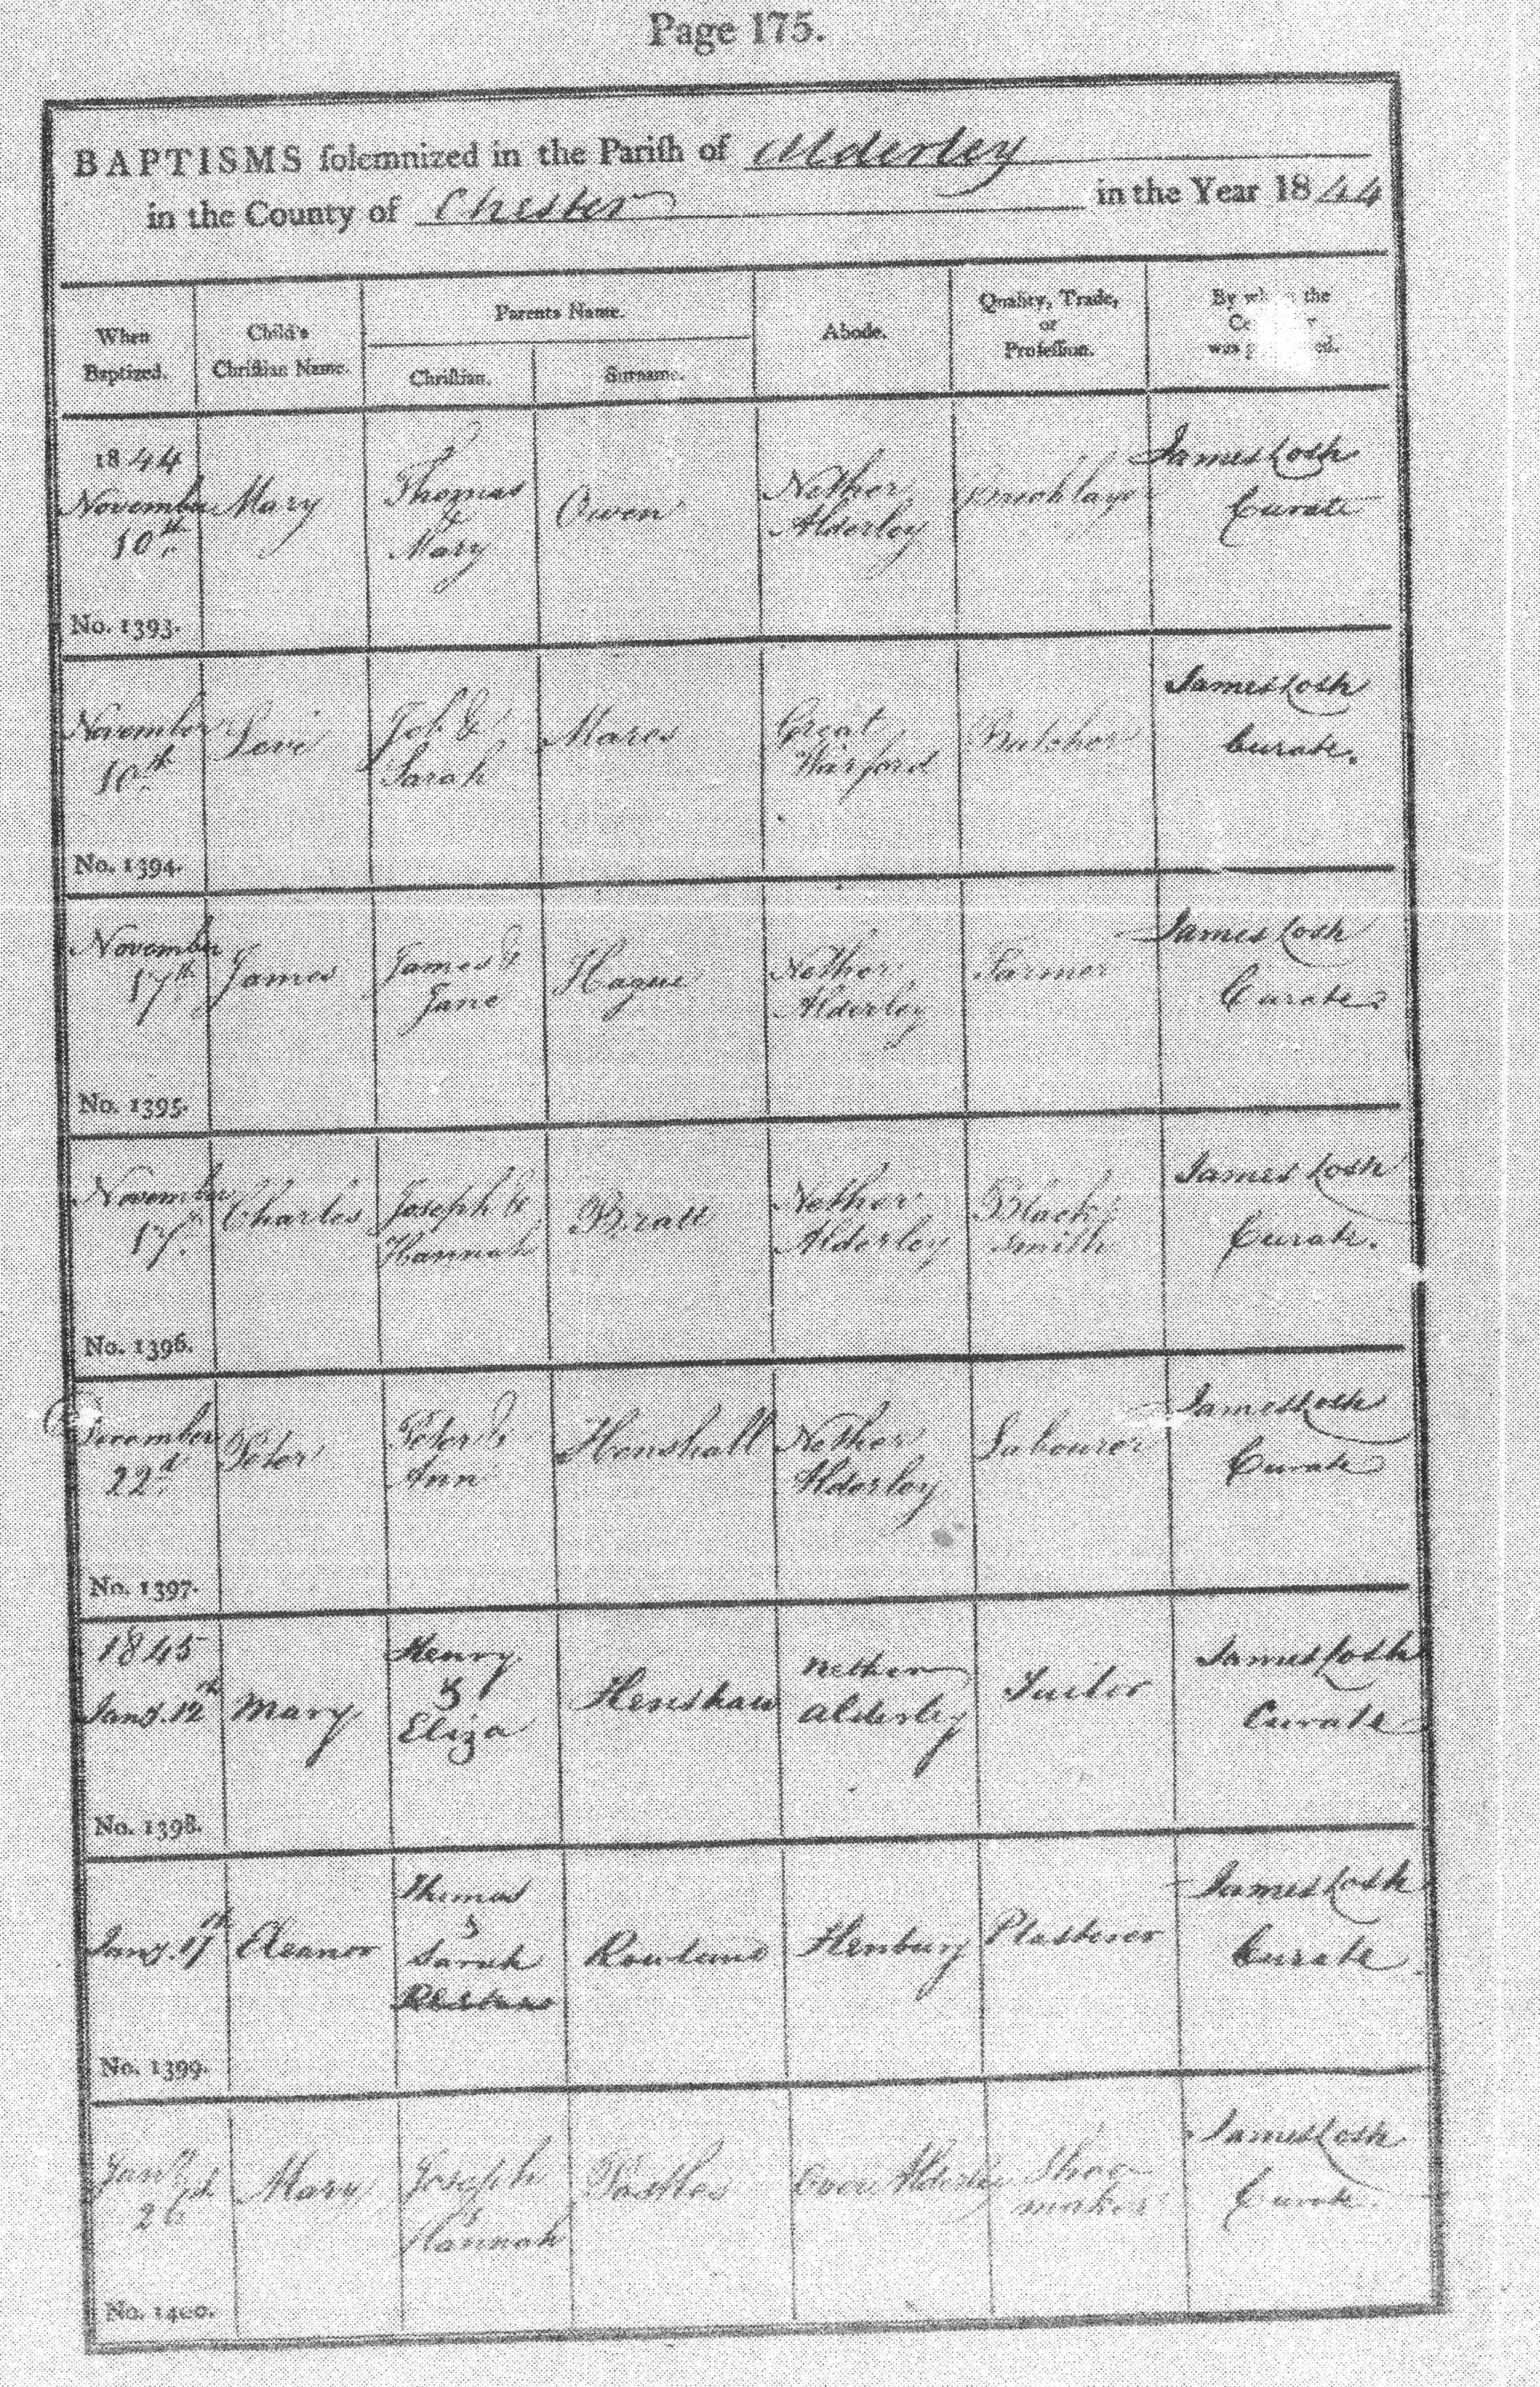 Page 175.
BAPTISMS solemnized in the Parish of Alderley
in the County of Chester in the Year 1844
When Baptized.
Child's Christian Name.
Parents Name.
Christian.
Surname.
Abode.
Quality, Trade, or Profession.
By whom the
was
1844
November 10th
Mary
Thomas & Mary
Owen
Nether Alderley
Bricklayer
James Cosh
Curate
No. 1393.
November 10th
Levi
Job & Sarah
Mares
Great Warford
Butcher
James Cosh
Curate.
No. 1394.
November 17th
James
James & Jane
Hague
Nether Alderley
Farmer
James Cosh
Curate.
No. 1395.
November 17th
Charles
Joseph & Hannah
Bratt
Nether Alderley
Black smith
James Cosh
Curate.
No. 1396.
December 22d
Peter
Peter & Ann
Henshall
Nether Alderley
Labourer
James Cosh
Curate
No. 1397.
1845
Jany. 12th
Mary
Henry & Eliza
Henshaw
Nether Alderley
Tailor
James Cosh
Curate
No. 1398.
Jany.
Eleanor
Thomas & Sarah
Henbury
Plasterer
James Cosh
Curate
No. 1399.
Jany 26th
Mary
Joseph & Hannah
Over Alderley
Shoe maker
James Cosh
Curate.
No. 1400.